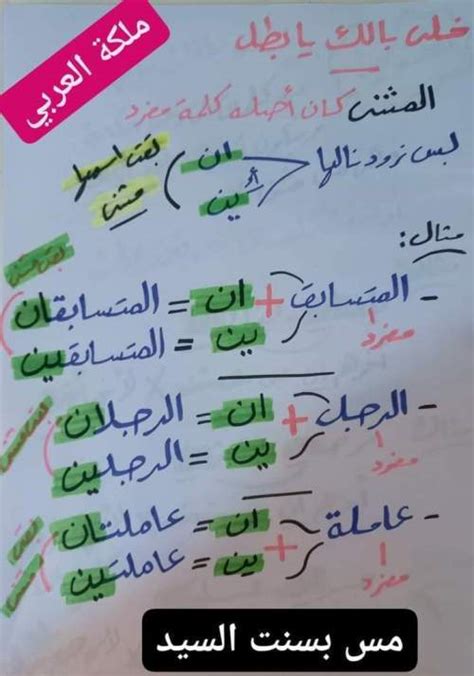 ملكة العربي
خلى بالك يا بطل
المثنى كان أصله كلمة مفرد
بس نزود نالها ان أو ين بقت اسمها مثنى
مثال:
- المتسابق + ان = المتسابقان
مفرد ين = المتسابقين
- الرجل + ان = الرجلان
مفرد ين = الرجلين
- عاملة + ان = عاملتان
مفرد ين = عاملتين
مس بسنت السيد